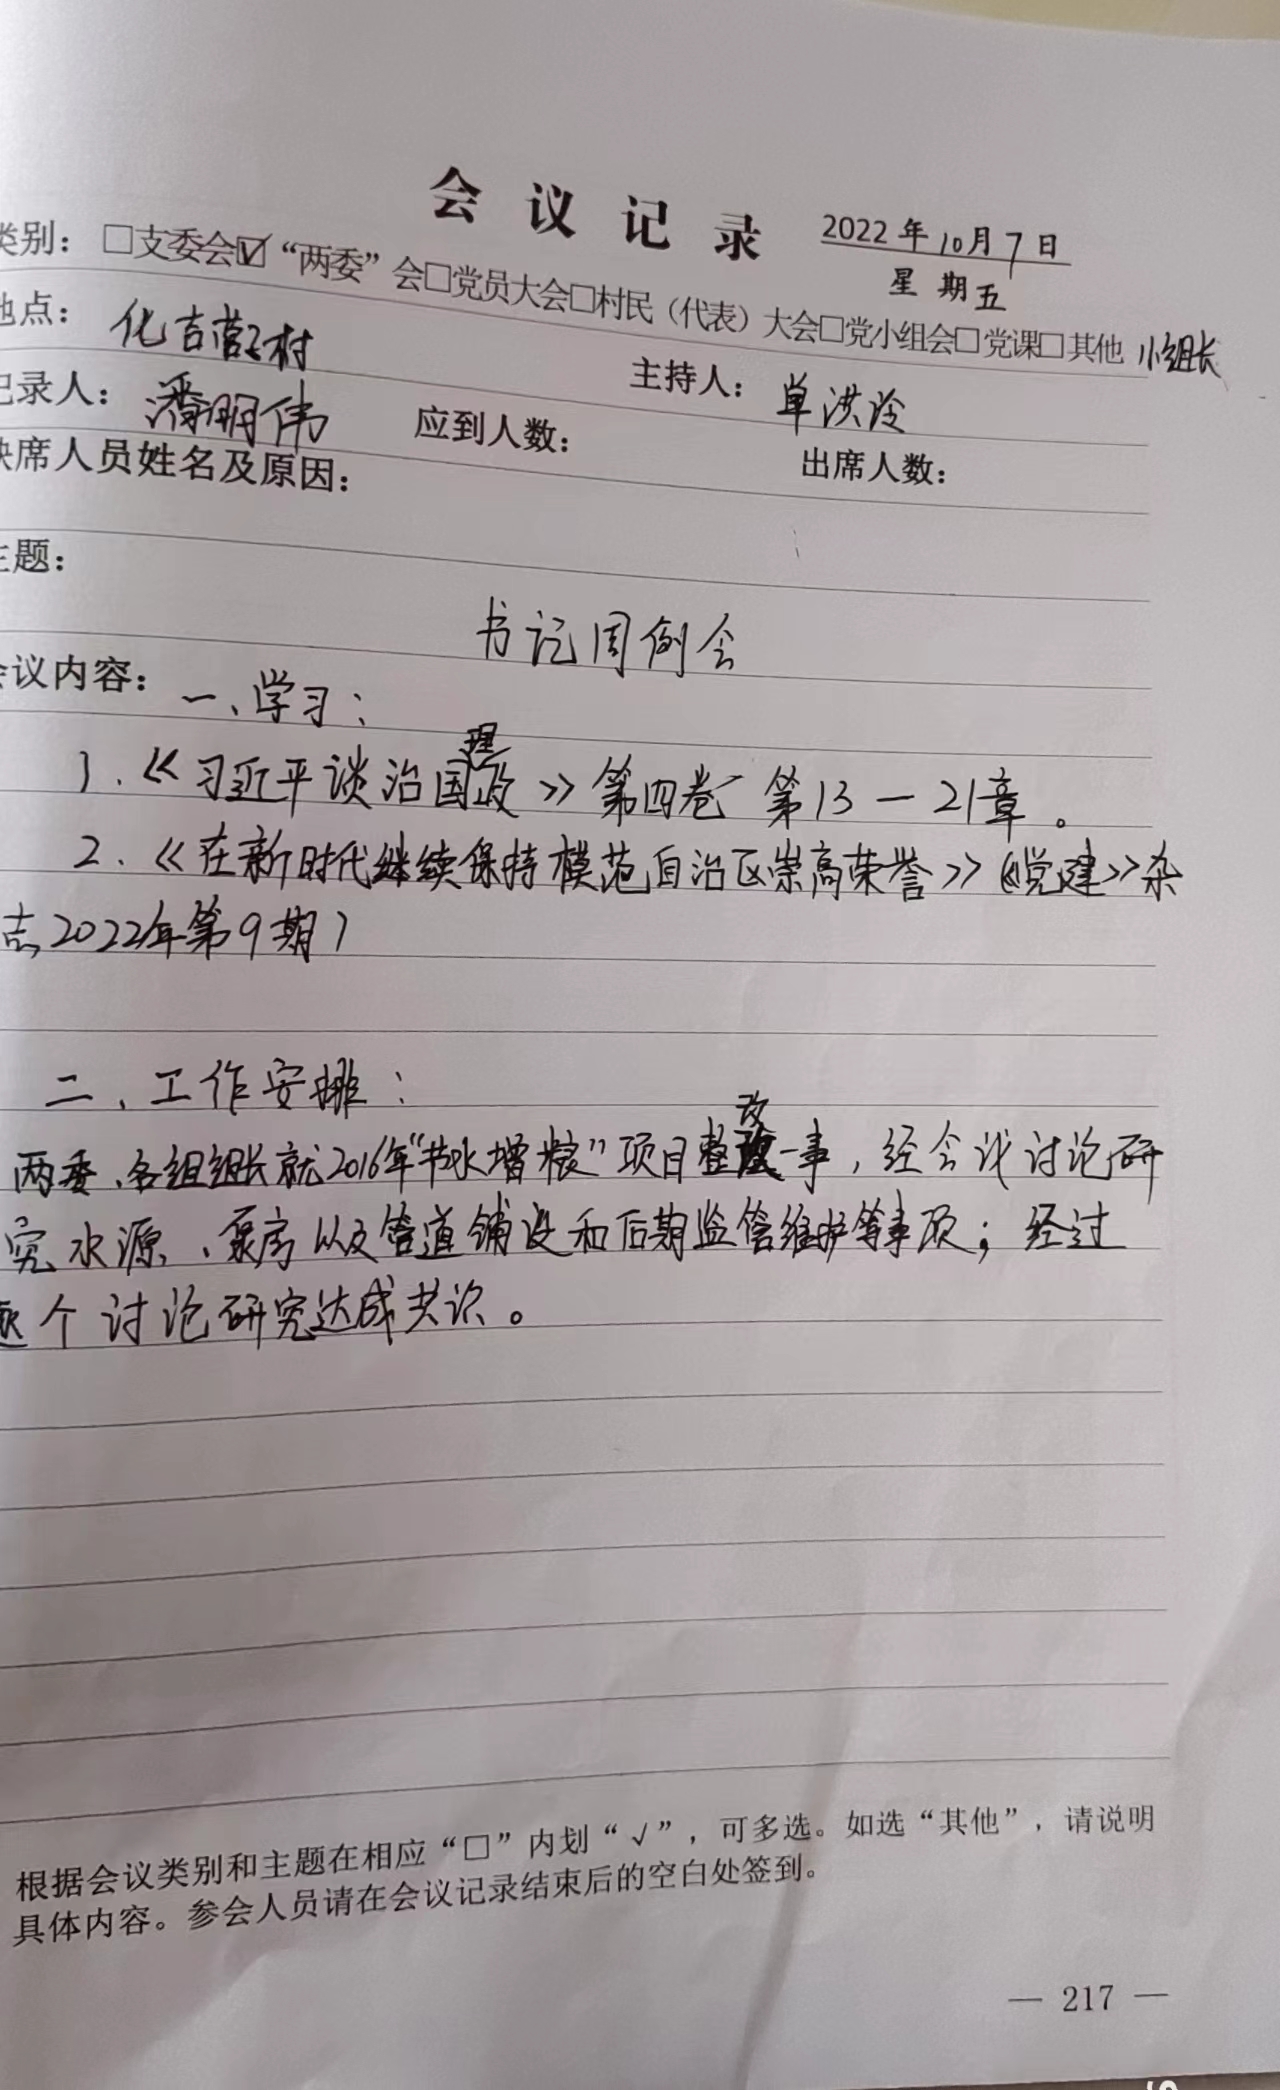 会议记录 2022年10月7日
星期五
类别：□支委会☑“两委”会□党员大会□村民（代表）大会□党小组会□党课□其他 小组长
地点：化吉营子村
主持人：单洪玲
记录人：潘明伟 应到人数：
出席人数：
缺席人员姓名及原因：
主题：
书记周例会
会议内容：一、学习：
1.《习近平谈治国理政》第四卷 第13—21章。
2.《在新时代继续保持模范自治区崇高荣誉》（《党建》杂
志2022年第9期）
二、工作安排：
两委、各组组长就2016年“节水增粮”项目整改一事，经会议讨论研
究水源、泵房以及管道铺设和后期监管维护等事项；经过
个讨论研究达成共识。
根据会议类别和主题在相应“□”内划“√”，可多选。如选“其他”，请说明
具体内容。参会人员请在会议记录结束后的空白处签到。
— 217 —